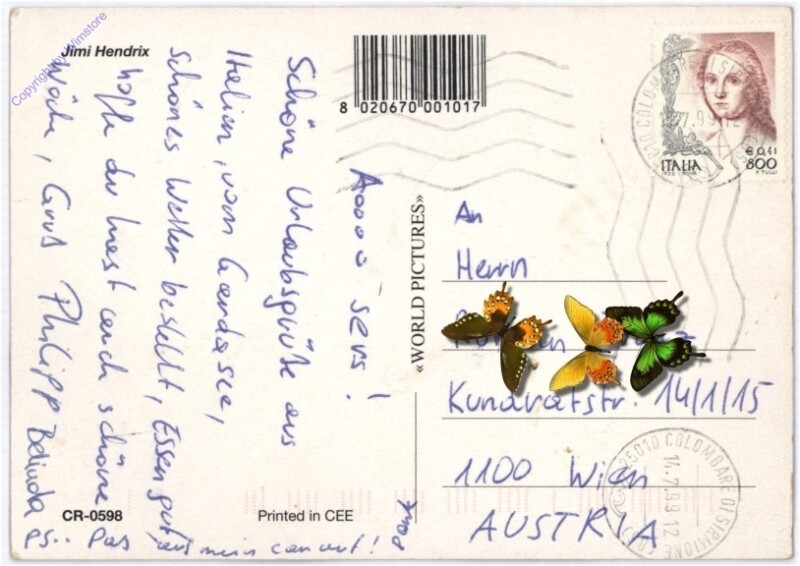 Copyright by Wimstore
Jimi Hendrix
8 020670 001017
Aoooo-sers!
Schöne Urlaubsgrüße aus
Italien, vom Gardasee,
Schönes Wetter bestellt, Essen gut,
hoffe du hast auch schöne
Woche, Gruß Philipp Belinda
ps.. Pass auf mein auf!
CR-0598
Printed in CEE
«WORLD PICTURES»
ITALIA
€ 0,41
800
F. TULLI
An
Herrn
Kundratstr. 14/1/15
1100 Wien
AUSTRIA
25010 COLOMBARE DI SIRMIONE
14.7.99 12